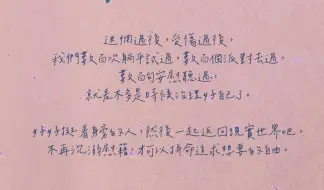 迷惘過後，受傷過後，
我們數百次躺平試過，數百個派對去過，
數百句安慰聽過，
就差不多是時候治理好自己了。
好好捉着身旁的人，然後一起返回現實世界吧。
不再沉溺慰藉，才可以拼命追求想要的自由。